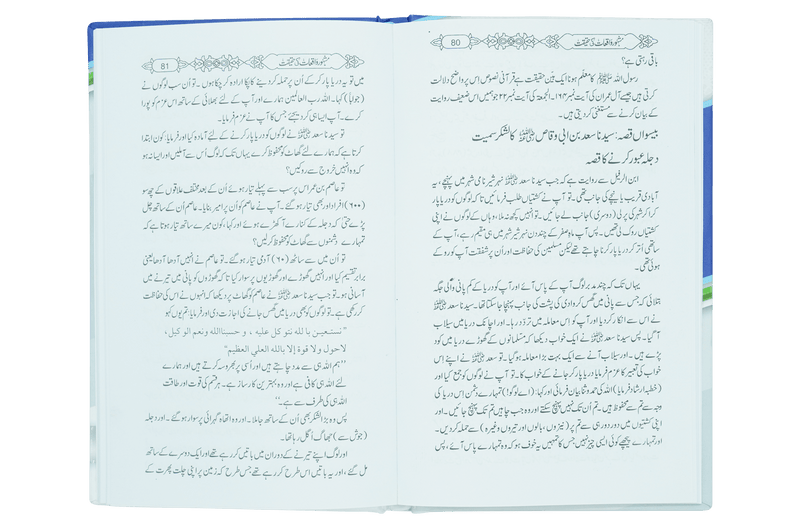 80 مشہور واقعات کی حقیقت
باقی رہتی ہے؟
رسول اللہ ﷺ کا معلم ہونا ایک بیّن حقیقت ہے قرآنی نصوص اس پر واضح دلالت
کرتی ہیں جیسے آل عمران کی آیت نمبر ۱۶۴۔ الجمعہ کی آیت نمبر ۲ جو ہمیں اس ضعیف روایت
کے بیان کرنے سے مستغنی کر دیتی ہیں۔
بیسواں قصہ: سیدنا سعد بن ابی وقاص رضی اللہ عنہ کا لشکر سمیت
دجلہ عبور کرنے کا قصہ
ابن الرفیل سے روایت ہے کہ جب سیدنا سعد رضی اللہ عنہ نہر شیر نامی شہر میں پہنچے، یہ
آبادی قریب یا نچلے کی جانب تھی۔ تو آپ نے کشتیاں طلب فرمائیں تاکہ لوگوں کو دریا پار
کرا کر شہر کی پرلی (دوسری) جانب لے جائیں۔ تو انہیں کچھ نہ ملا، وہاں کے لوگوں نے اپنی
کشتیاں روک لی تھیں۔ پس آپ ماہ صفر کے چند دن نہر شیر شہر میں ہی مقیم رہے، آپ کے
ساتھی اتر کر دریا پار کرنا چاہتے تھے لیکن مسلمین کی حفاظت اور ان پر شفقت آپ کو روکے
ہوئی تھی۔
یہاں تک کہ چند بدبر لوگ آپ کے پاس آئے اور آپ کو دریا کے کم پانی والی جگہ
بتلائی کہ جس سے پانی میں گھس کر وادی کی پشت کی جانب پہنچا جا سکتا تھا۔ سیدنا سعد رضی اللہ عنہ
نے اس سے انکار کر دیا اور آپ کو اس معاملہ میں تردد رہا۔ اور اچانک دریا میں سیلاب
آ گیا۔ پس سیدنا سعد رضی اللہ عنہ نے ایک خواب دیکھا کہ مسلمانوں کے گھوڑے دریا میں کود
پڑے ہیں۔ اور سیلاب آنے سے ایک بہت بڑا معاملہ ہو گیا۔ تو سعد رضی اللہ عنہ نے اپنے اس
خواب کی تعبیر کا عزم فرمایا دریا پار جانے کے خواب کا۔ تو آپ نے لوگوں کو جمع کیا اور
(خطبہ ارشاد فرمایا) اللہ کی حمد و ثنا بیان فرمائی اور کہا: (اے لوگو!) تمہارے دشمن اس دریا کی
وجہ سے تم سے محفوظ ہیں۔ تم ان تک نہیں پہنچ سکتے اور وہ جب چاہیں تم تک پہنچ جائیں۔ اور
اپنی کشتیوں میں دور دور ہی سے تم پر (نیزوں، بالوں اور تیروں وغیرہ) سے حملہ کر دیں۔
اور تمہارے پیچھے کوئی ایسی چیز نہیں جس کا تمہیں یہ خوف ہو کہ وہ تمہارے پاس آئے، پس
81 مشہور واقعات کی حقیقت
میں تو یہ دریا پار کر کے ان پر حملہ کر دینے کا پکا ارادہ کر چکا ہوں۔ تو ان سب لوگوں نے
(جواباً) کہا۔ اللہ رب العالمین ہمارے اور آپ کے لئے بھلائی کے ساتھ اس عزم کو پورا
کرے۔ آپ ایسا ہی کر دیجئے جس کا آپ نے عزم فرمایا۔
تو سیدنا سعد رضی اللہ عنہ نے لوگوں کو دریا پار کرنے کے لئے آمادہ کیا اور فرمایا: کون ابتدا
کرتا ہے کہ ہمارے لئے گھاٹ کو محفوظ کرے یہاں تک کہ لوگ اس سے آملیں اور ایسا نہ ہو
کہ وہ انہیں خروج سے روکیں؟
تو عاصم بن عمر اس پر سب سے پہلے تیار ہوئے ان کے بعد مختلف علاقوں کے چھ سو
(۶۰۰) افراد اور بھی تیار ہو گئے۔ آپ نے عاصم کو ان پر امیر بنایا۔ عاصم ان کے ساتھ چل
پڑے حتیٰ کہ دجلہ کے کنارے آ کھڑے ہوئے اور کہا، کون میرے ساتھ تیار ہوتا ہے کہ
تمہارے دشمنوں سے گھاٹ کو محفوظ کر لیں؟
تو ان میں سے ساٹھ (۶۰) آدمی تیار ہو گئے۔ تو عاصم نے انہیں آدھا آدھا یعنی
برابر تقسیم کیا اور انہیں گھوڑے اور گھوڑیوں پر سوار کیا تاکہ گھوڑوں کو پانی میں تیرنے میں
آسانی ہو۔ تو جب سیدنا سعد رضی اللہ عنہ نے عاصم کو گھاٹ پر دیکھا کہ انہوں نے اس کی حفاظت
کر رکھی ہے۔ تو لوگوں کو بھی دریا میں گھس جانے کی اجازت دی اور فرمایا: تم یوں کہو
"نستعین با لله نتو کل علیه ، و حسبنا الله و نعم الوکیل ،
لا حول ولا قوة إلا بالله العلي العظيم"
"ہم اللہ ہی سے مدد چاہتے ہیں اور اسی پر بھروسہ کرتے ہیں اور ہمارے
لئے اللہ ہی کافی ہے اور وہ بہترین کارساز ہے۔ ہر قسم کی قوت اور طاقت
اللہ ہی کی طرف سے ہے۔"
پس وہ بڑا لشکر بھی ان کے ساتھ جا ملا۔ اور وہ اتھاہ گہرائی پر سوار ہو گئے۔ اور دجلہ
(جوش سے) جھاگ اگل رہا تھا۔
اور لوگ اپنے تیرنے کے دوران میں باتیں کر رہے تھے اور ایک دوسرے کے ساتھ
مل گئے، اور یہ باتیں اس طرح کر رہے تھے جس طرح کہ زمین پر اپنی چلت پھرت کے